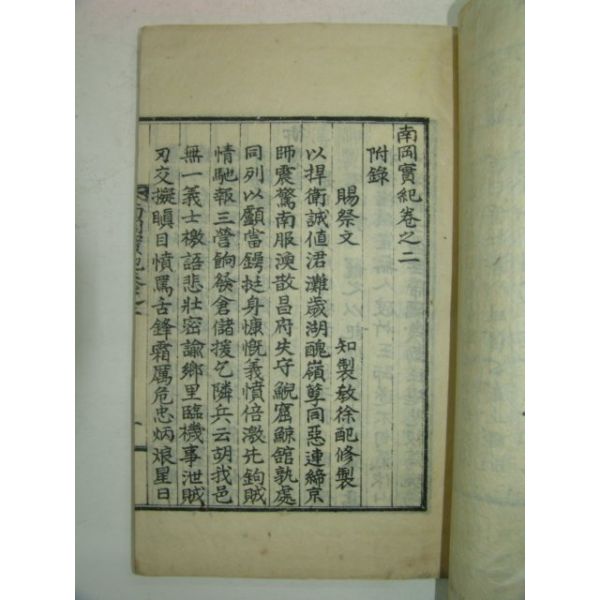 南岡實紀卷之二
附錄
賜祭文 知製敎徐配修製
以捍衛誠値涒灘歲湖醜嶺孽同惡連締京
師震驚南服渙散昌府失守鯢窟鯨舘孰處
同列以顱當鍔挺身慷慨義憤倍激先鉤賊
情馳報三營餉餱倉儲援乞隣兵云胡我邑
無一義士檄語悲壯密諭鄕里臨機事泄賊
刃交擬瞋目憤罵舌鋒霜厲危忠炳烺星日